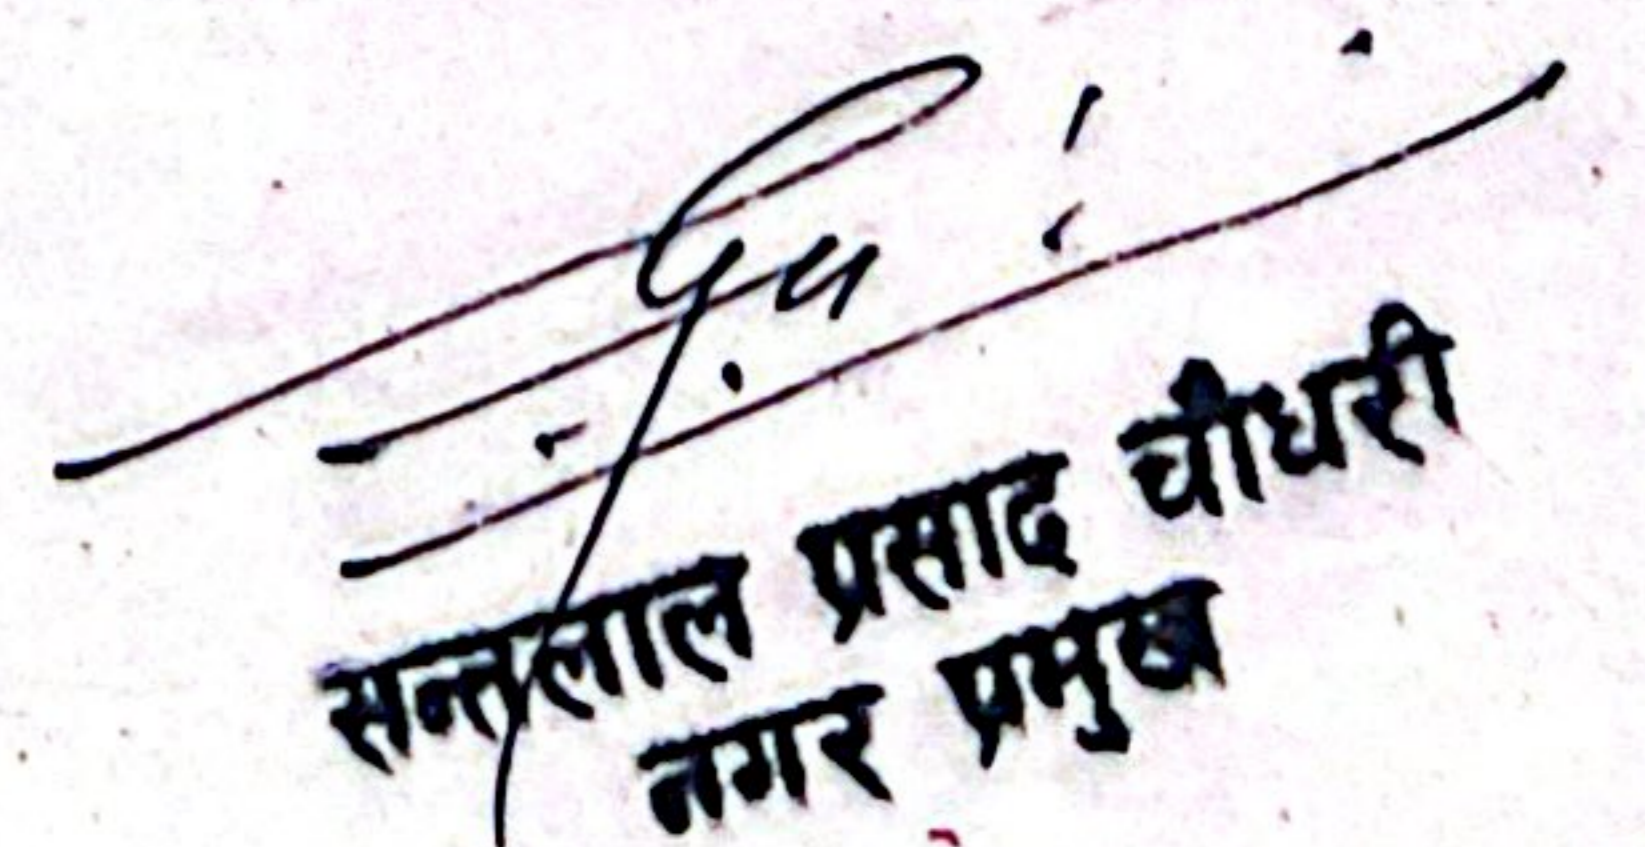 सन्तलाल प्रसाद चौधरी
नगर प्रमुख